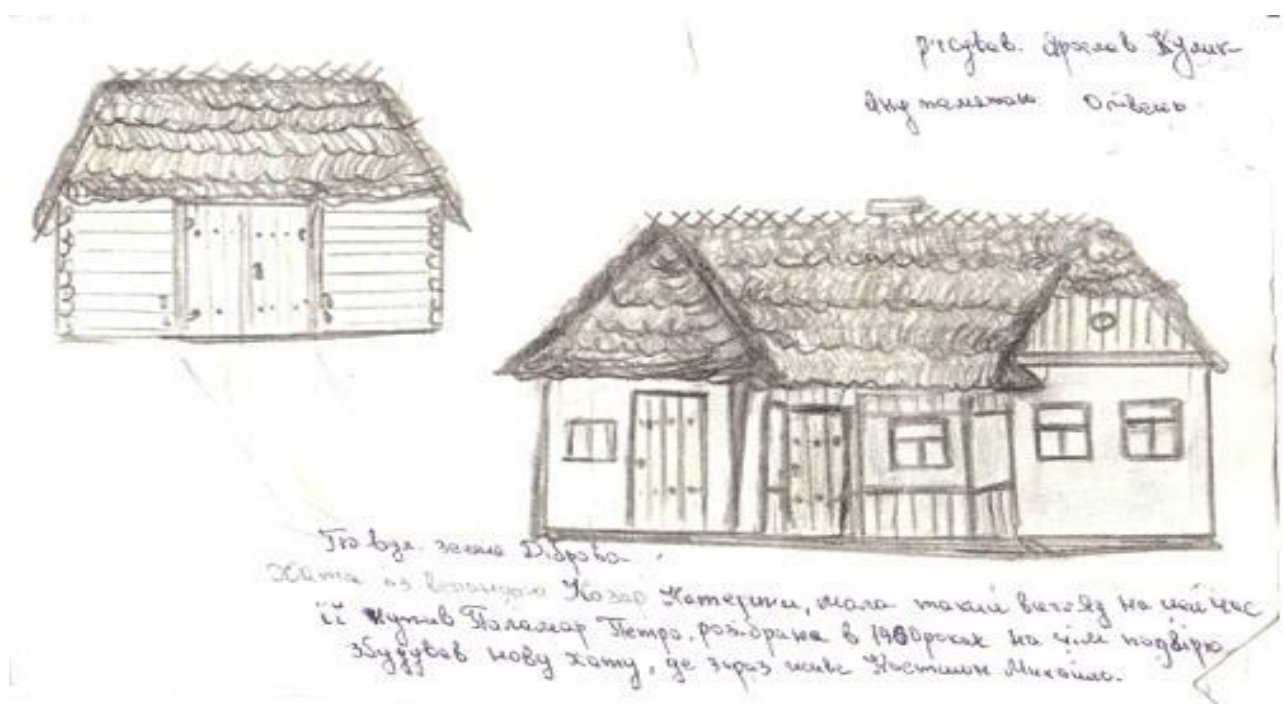 рисував. Ярослав Кулик
По вул. зелена Діброва.
Хата із верандою Козар Катерини, мала такий вигляд на цей час
її купив Паламар Петро, розібрана в 1960роках на цім подвірю
збудував нову хату, де зараз живе Костишин Михайло.